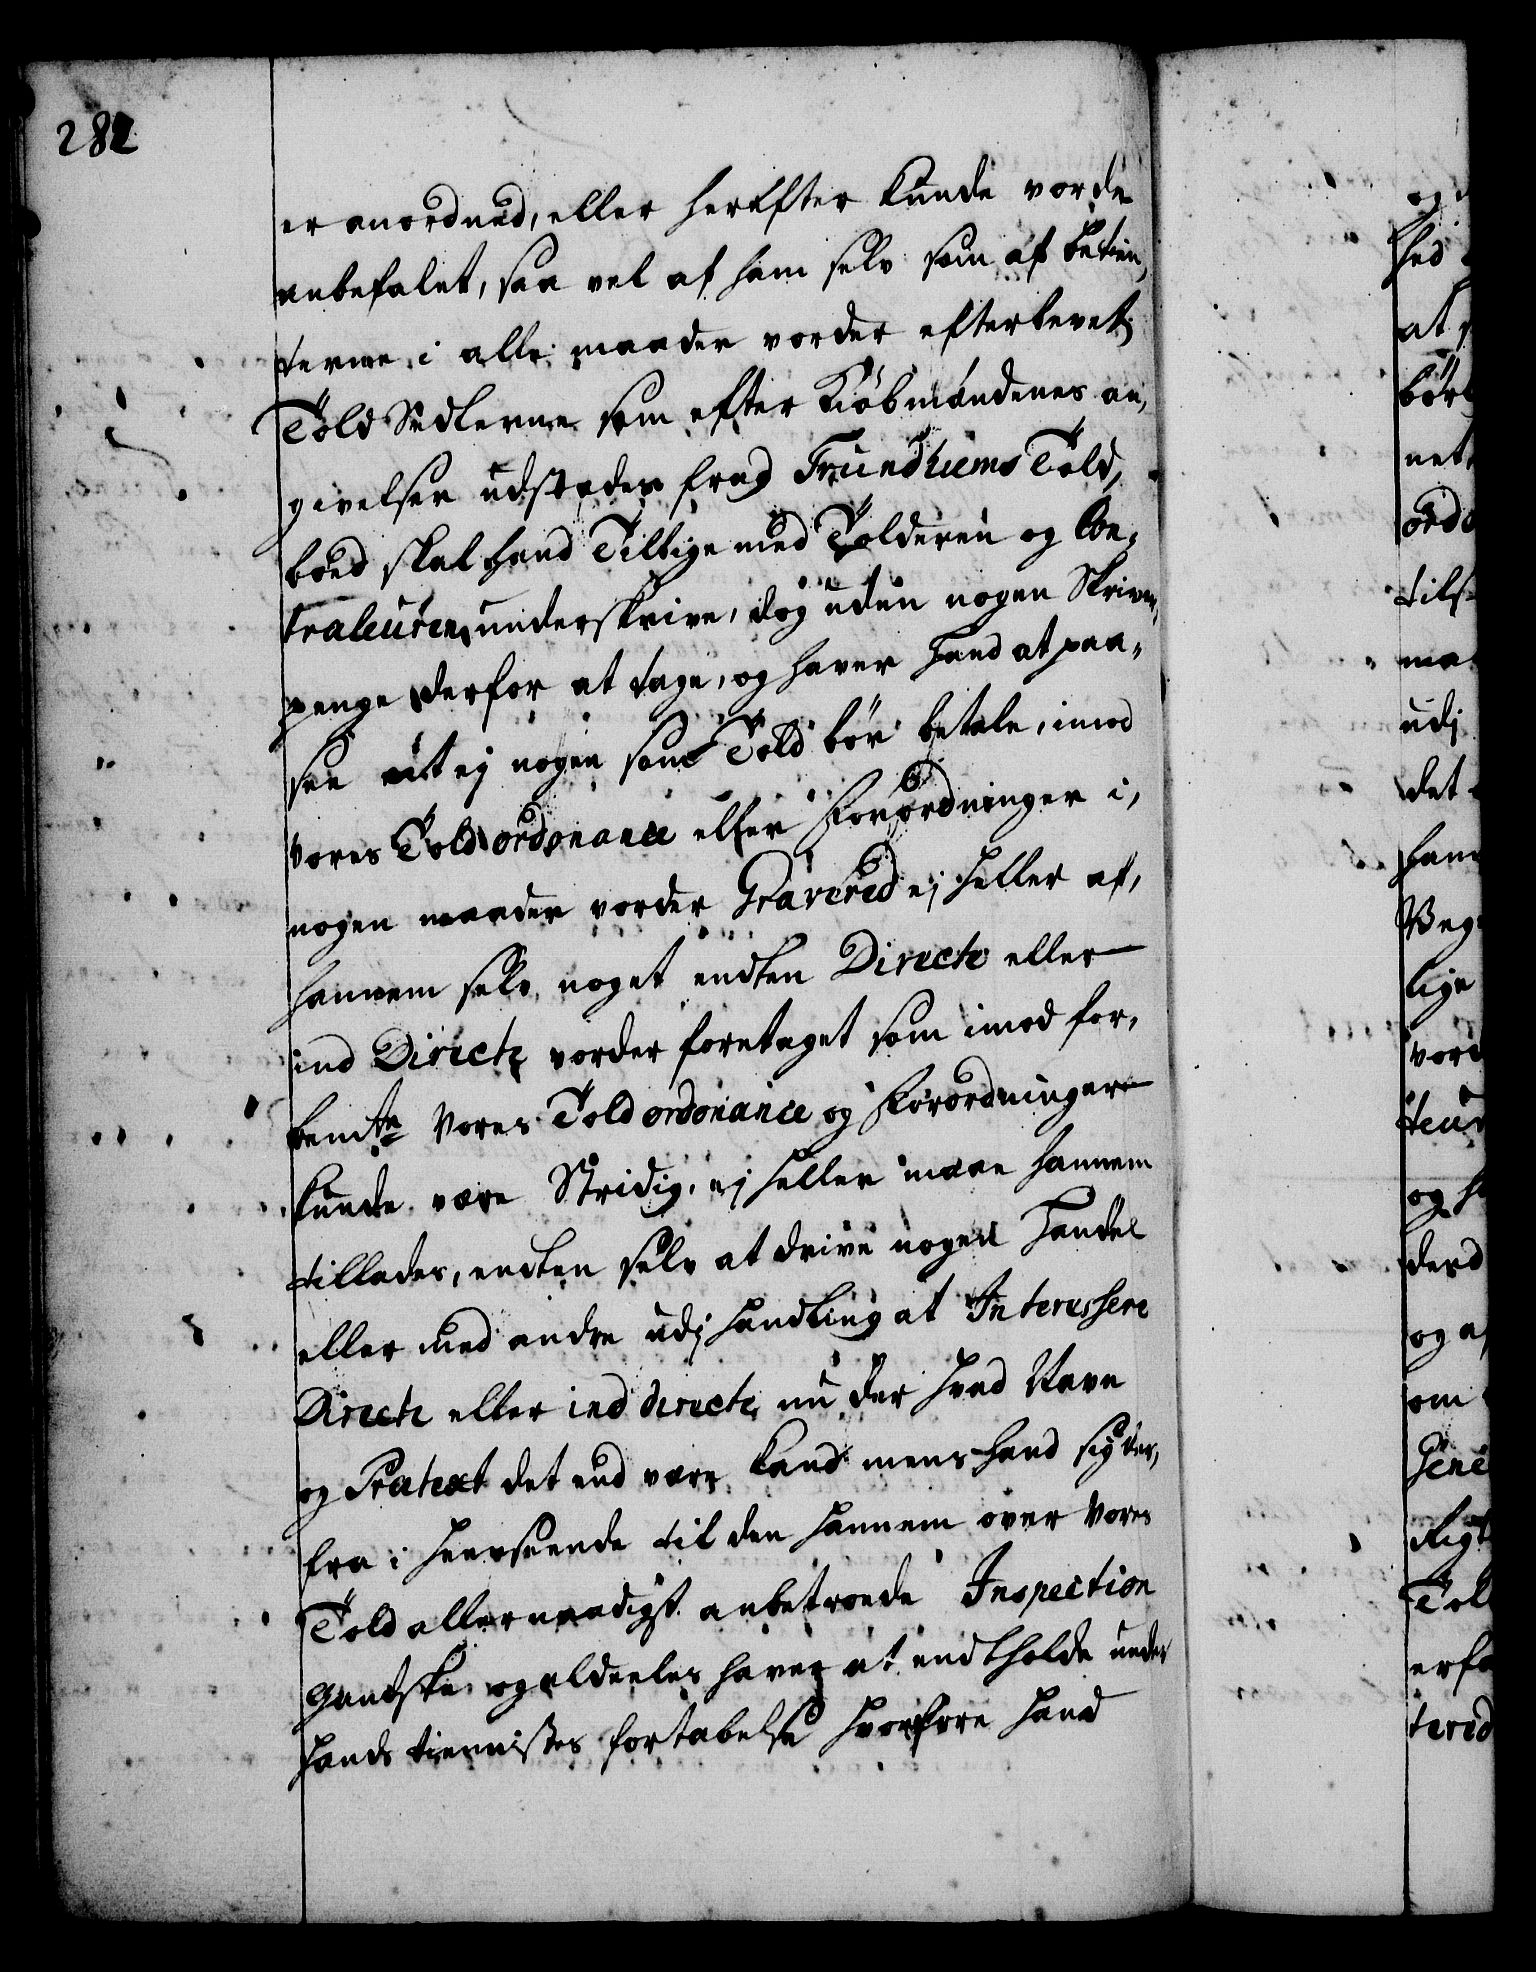 282
er anordned, eller herefter kunde vorde
anbefalet, saa vel af ham selv som af betien,
terne i alle maader vorder efterlevet,
Told Sedlerne som efter Kiöbmændenes an,
givelser udstædes fra Trundhiems Told,
boed skal hand Tillige med Tolderen og Con,
traleuren underskrive, dog uden nogen Skriver,
penge derfor at tage, og haver hand at paa,
see at ej nogen som Told bör betale, imod
Vores Told ordonance eller Forordninger i,
nogen maader vorder Gravered ej heller af,
hannem selv noget endten Directe eller
ind Directe vorder foretaget som imod for,
bemte Vores Told ordonance og Forordninger
kunde være Stridig, ej heller maae hannem
tillades, endten selv at drive nogen Handel
eller med andre udj handling at Interessere
Directe eller ind directe, under hvad Navn
og Prætext det end være kand mens hand sig der,
fra i henseende til den hannem over Vores
Told allernaadigst anbetroede Inspection
Gandske og aldeeles haver at endtholde under
hands tienistes fortabelse hvorfore hand
og
hed
at
börl
net
ordo
tils
ma
udj
det
hann
Veg
lige
vord
teur
og h
derd
og af
om
Gene
Rigt
Tol
erfa
tered